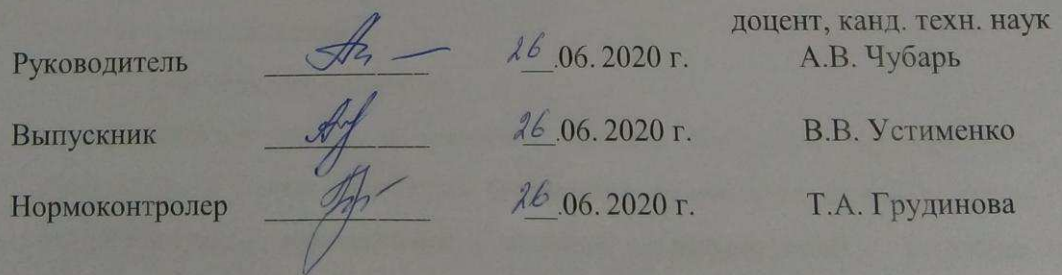 доцент, канд. техн. наук
Руководитель 26.06.2020 г. А.В. Чубарь
Выпускник 26.06.2020 г. В.В. Устименко
Нормоконтролер 26.06.2020 г. Т.А. Грудинова